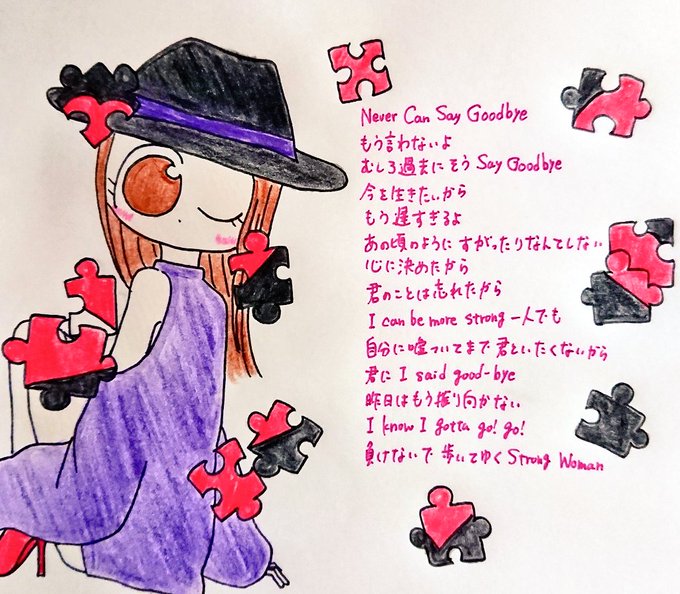 Never Can Say Goodbye
もう言わないよ
むしろ過去にそう Say Goodbye
今を生きたいから
もう遅すぎるよ
あの頃のように すがったりなんてしない
心に決めたから
君のことは忘れたから
I can be more strong 一人でも
自分に嘘ついてまで 君といたくないから
君に I said good-bye
昨日はもう振り向かない
I know I gotta go! go!
負けないで 歩いてゆく Strong Woman